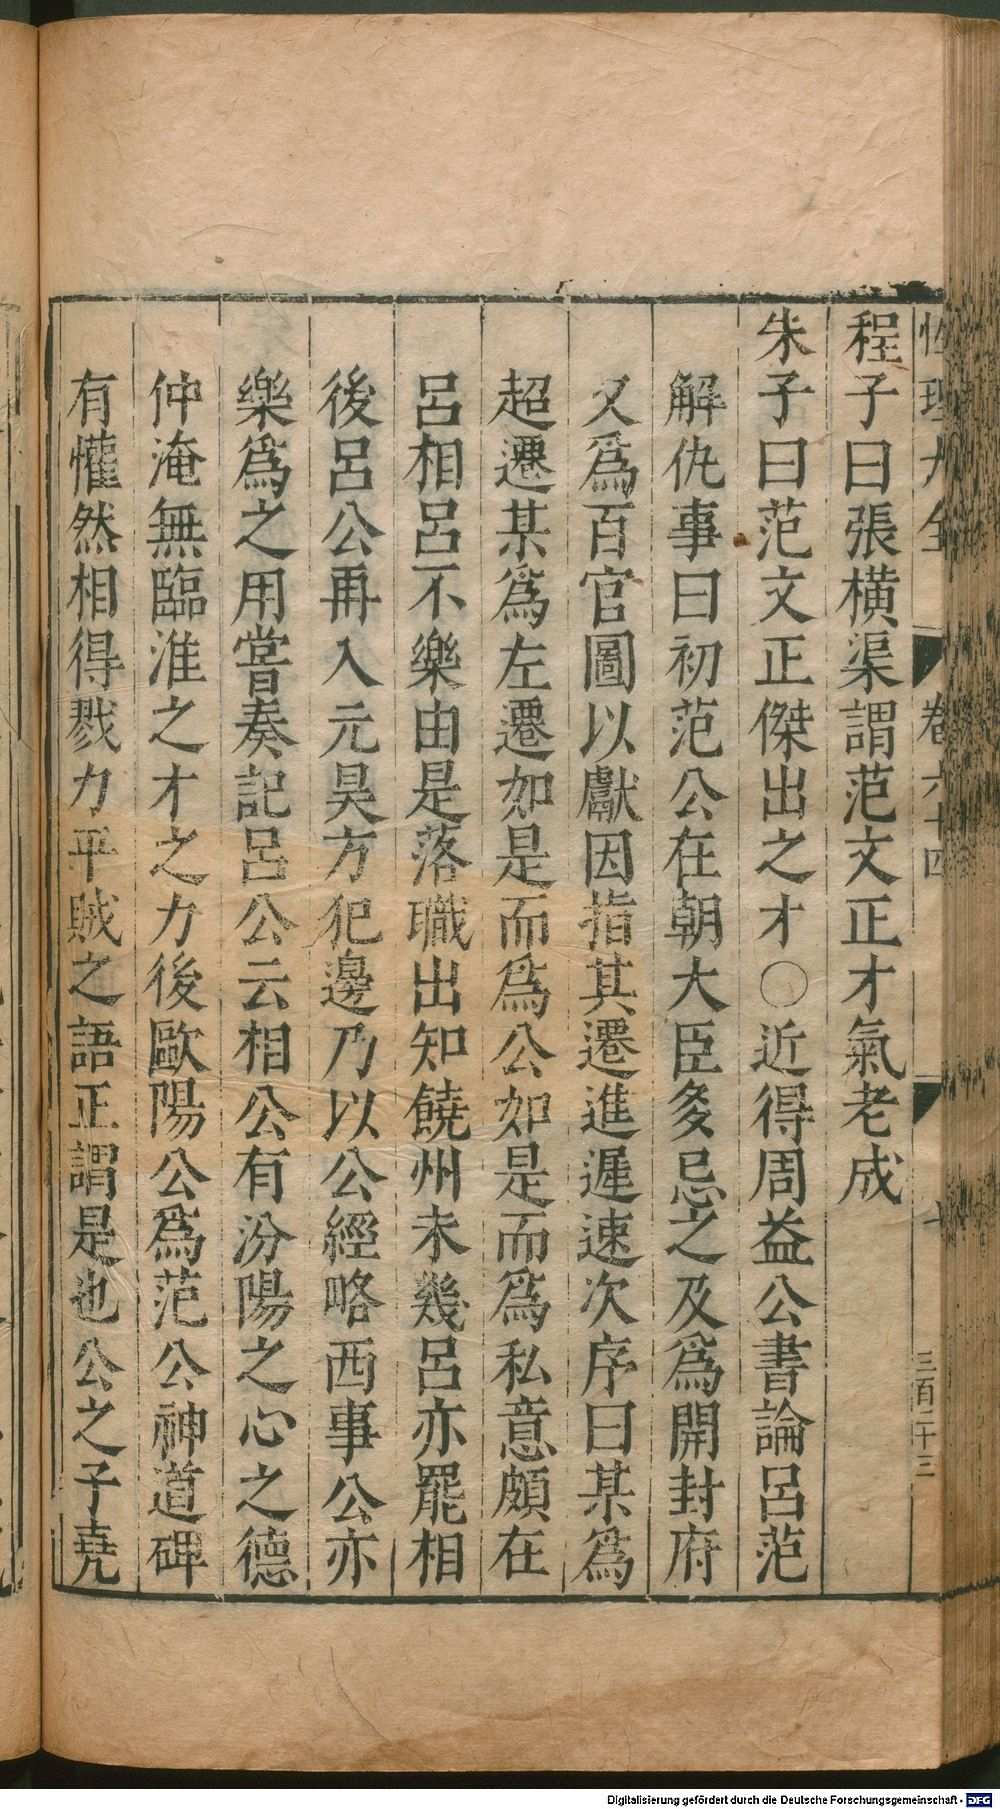 性理大全 卷六十四 三百二十三
程子曰張橫渠謂范文正才氣老成
朱子曰范文正傑出之才○近得周益公書論呂范
解仇事曰初范公在朝大臣多忌之及爲開封府
又爲百官圖以獻因指其遷進遲速次序曰某爲
超遷某爲左遷如是而爲公如是而爲私意頗在
呂相呂不樂由是落職出知饒州未幾呂亦罷相
後呂公再入元昊方犯邊乃以公經略西事公亦
樂爲之用嘗奏記呂公云相公有汾陽之心之德
仲淹無臨淮之才之力後歐陽公爲范公神道碑
有懽然相得戮力平賊之語正謂是也公之子堯
Digitalisierung gefördert durch die Deutsche Forschungsgemeinschaft - DFG